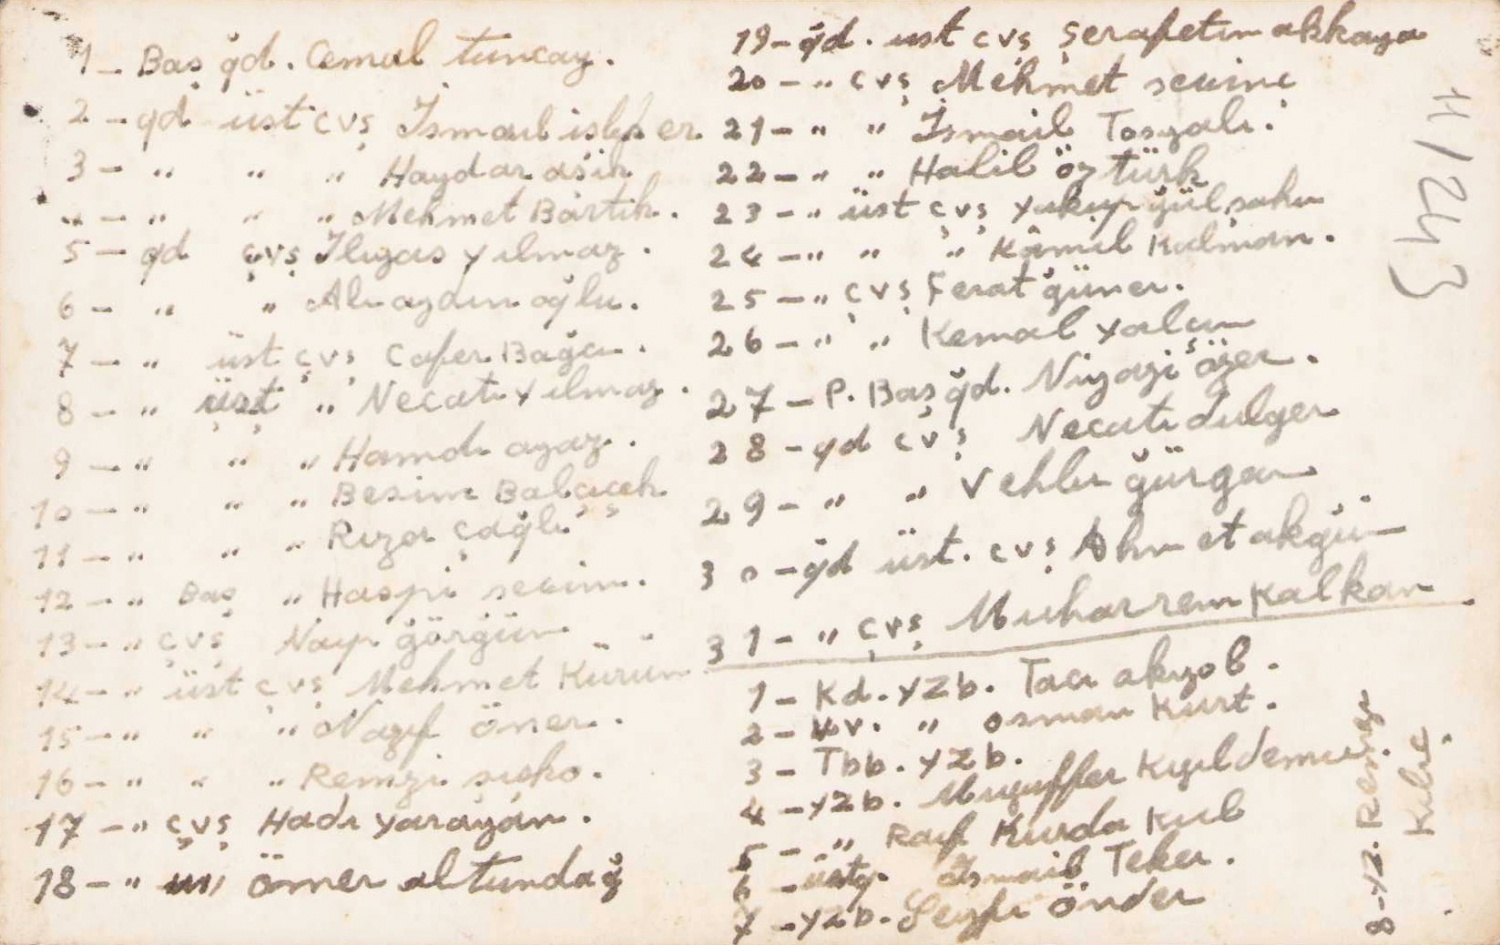 1 - Baş ğd. Cemal tuncay.
2 - qd üst cvş İsmail
3 - " " " Haydar aşık
4 - " " " Mehmet Bartık.
5 - qd çvş İlyas yılmaz.
6 - " " Alı aydın oğlu.
7 - " üst çvş Cafer Bağcı.
8 - " üşt " Necatı yılmaz.
9 - " " " Hamdı ayaz.
10 - " " " Besim
11 - " " " Rıza çağlı
12 - " Baş " Haspi secim.
13 - " çvş Nayı görgün
14 - " üst çvş Mehmet Kürün
15 - " " " Nazıf öner.
16 - " " " Remzi sıcko.
17 - " çvş Hadı yarayan.
18 - " ömer altundağ
19 - ğd. ust cvş Şerafetın akkaya
20 - " cvş Mehmet sevinç
21 - " " İsmail Tosyalı.
22 - " " Halil öztürk
23 - " üst çvş yakup gülşahın
24 - " " " Kâmil Kalman.
25 - " çvş Ferat ğüner.
26 - " " Kemal yalcın
27 - P. Baş ğd. Niyazi özer.
28 - qd cvş Necatı dulger
29 - " " Vehbı ğürgan
30 - ğd üst. cvş Ahmet akgün
31 - " çvş Muharrem Kalkan
1 - Kd. yzb. Tacı akyol.
2 - kv. " osman Kurt.
3 - Tbb. yzb.
4 - yzb. Muzaffer Kızıldemir.
5 - " Raif Kurda Kul
6 - üstğ. İsmail Teker.
7 - yzb. Seyfı önder
8 - yz. Remzi
Kılıç.
11/243